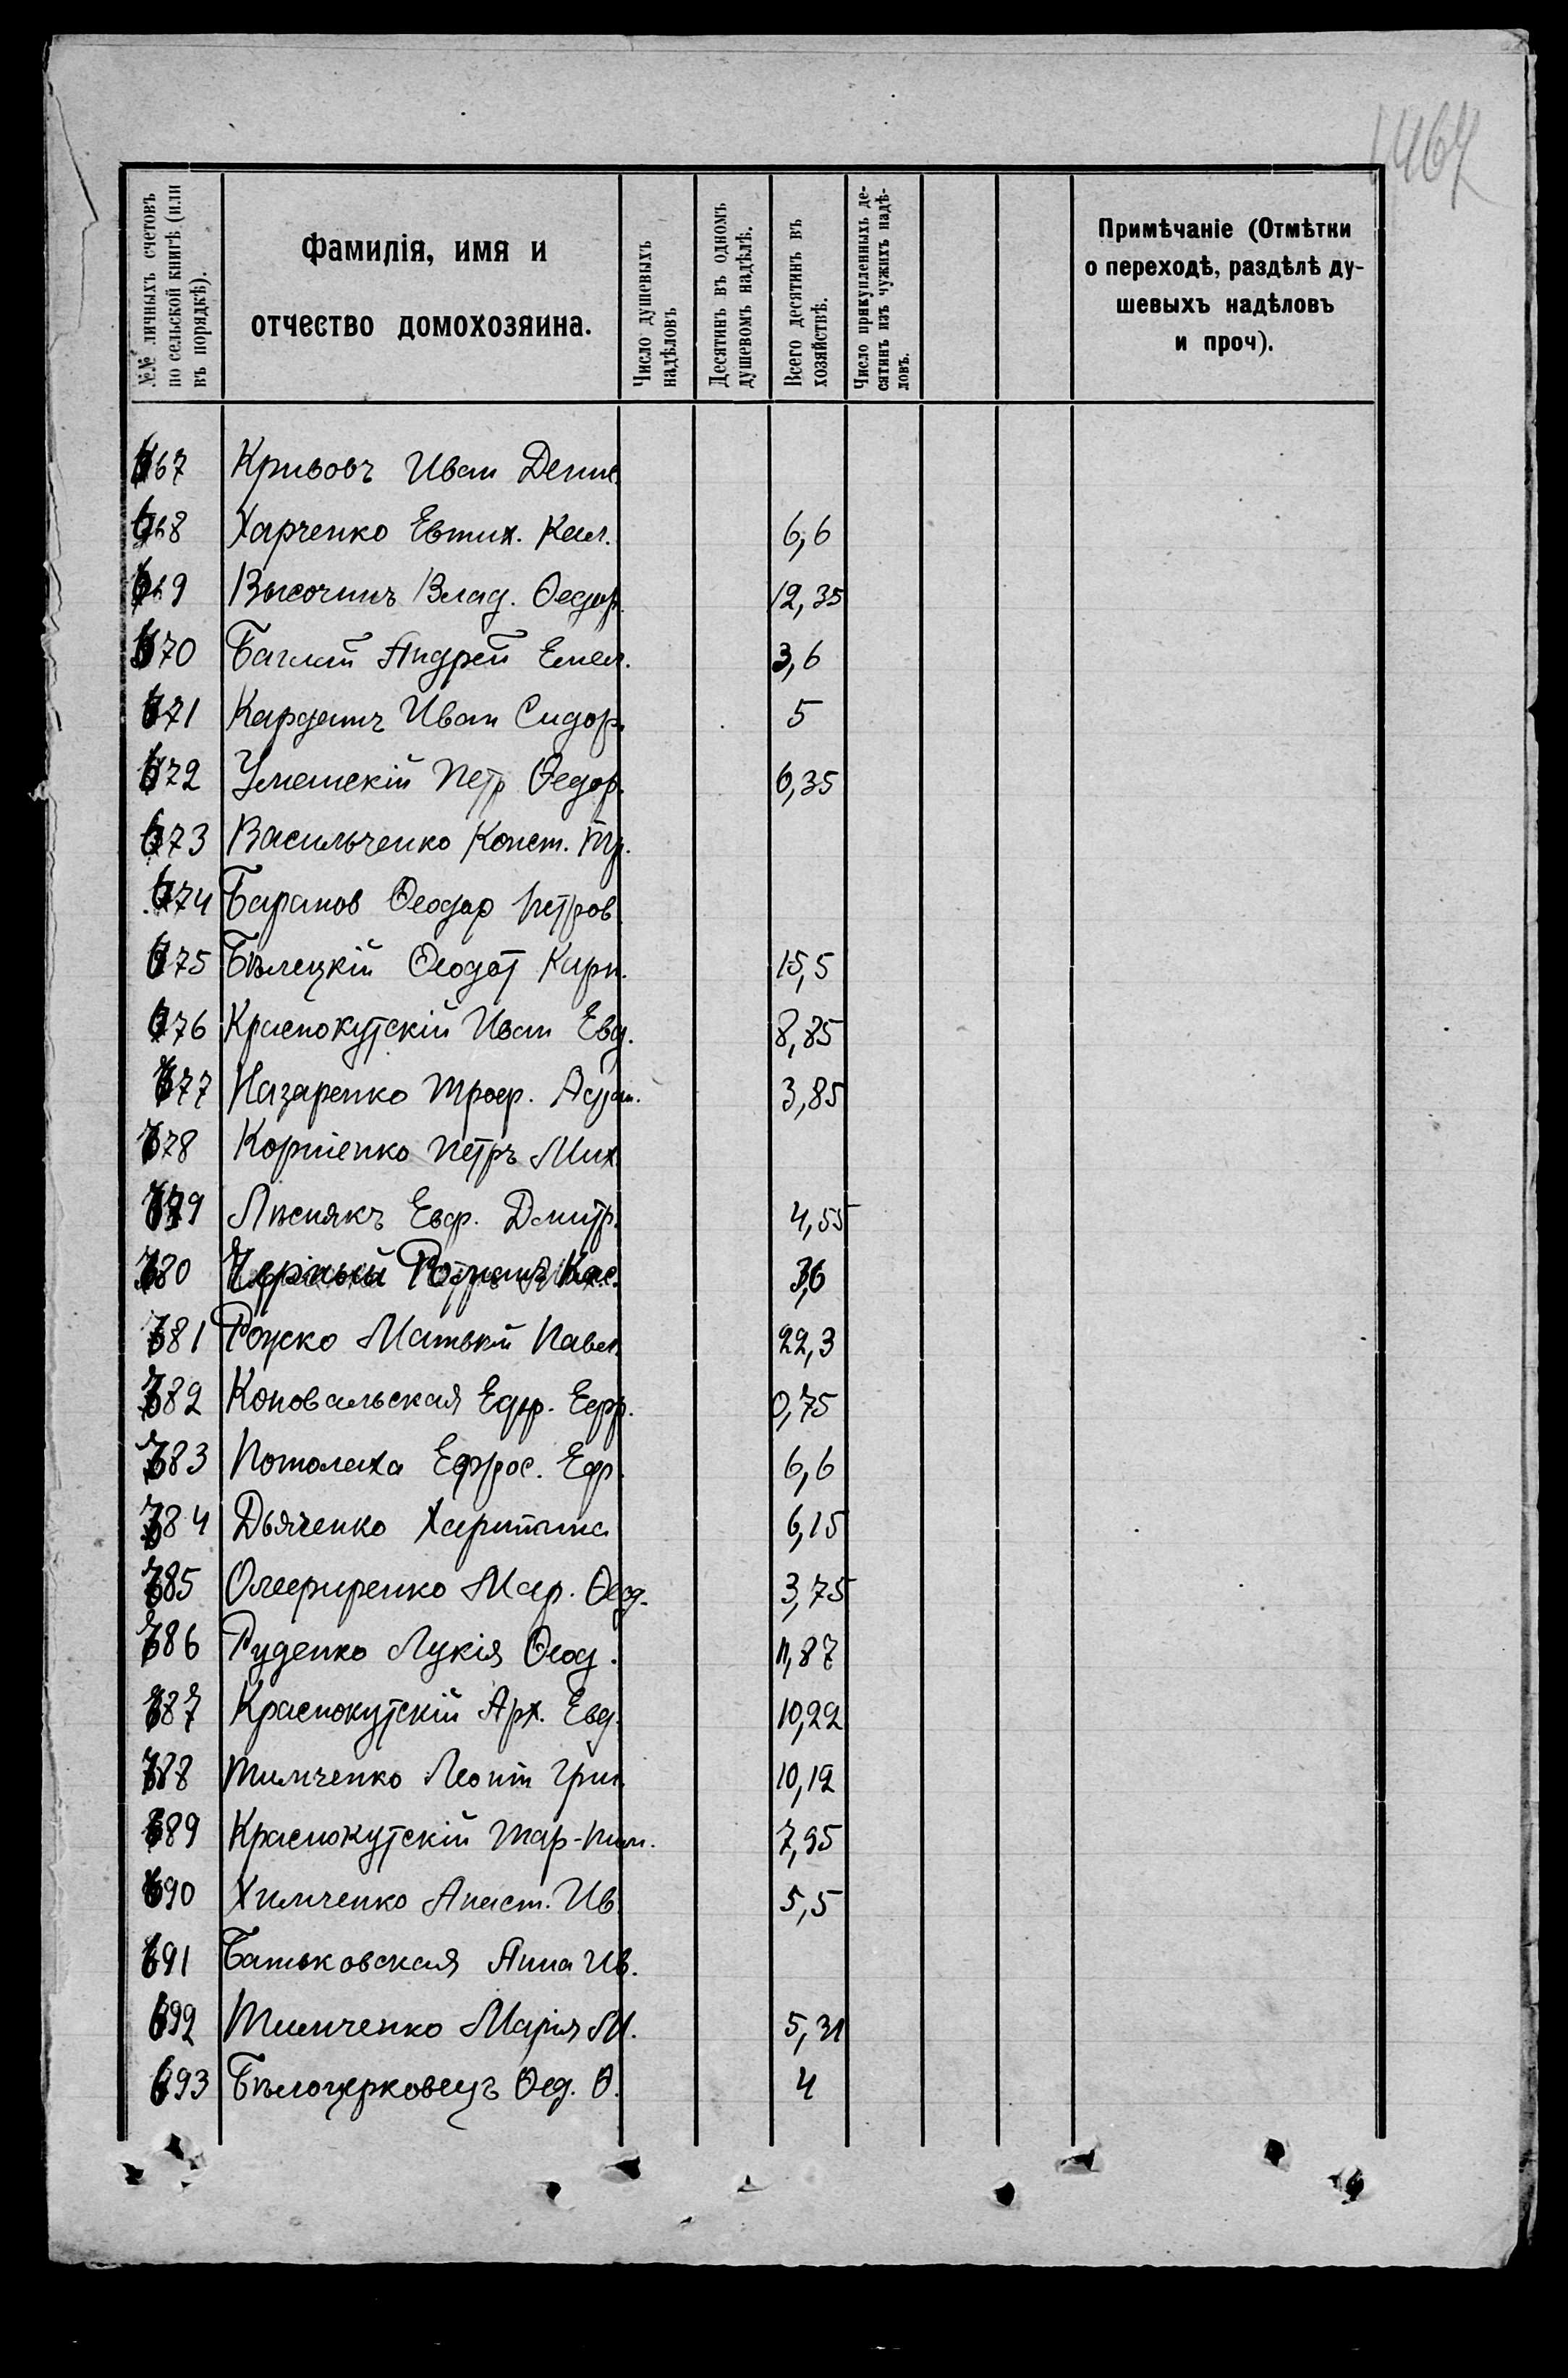 1467
№№ личныхъ счетовъ по сельской книгѣ (или въ порядкѣ).
Фамилія, имя и отчество домохозяина.
Число душевыхъ надѣловъ
Десятинъ въ одномъ душевомъ надѣлѣ.
Всего десятинъ въ хозяйствѣ.
Число прикупленныхъ десятинъ изъ чужихъ надѣловъ.
Примѣчаніе (Отмѣтки о переходѣ, раздѣлѣ душевыхъ надѣловъ и проч).
667 Кривовъ Иван Денис.
668 Харченко Евтих. 6,6
669 Височинъ Влад. Ѳедор. 12,35
670 Баглий Андрей Емел. 3,6
671 Кардашъ Иван Сидор. 5
672 Петр Ѳедор. 6,35
673 Васильченко Конст.
674 Баранов Ѳеодор Петров.
675 Бѣлецкій Ѳеодот Карп. 15,5
676 Краснокутскій Иван Евд. 8,85
677 Назаренко Троф. 3,85
678 Корніенко Петръ Мих.
679 Лѣснякъ Евф. Дмитр. 4,55
680 3,6
681 Рощко Матвѣй Павл. 22,3
682 Коновальская Ефр. 0,75
683 Потолаха Ефрос. Еф. 6,6
684 Дьяченко Харитина 6,15
685 Олефиренко Мар. Ѳеод. 3,75
686 Руденко Лукія Ѳеод. 11,87
687 Краснокутскій Арх. Евд. 10,22
688 Тимченко Леонт Григ. 10,12
689 Краснокутскій Тар. 7,95
690 Химченко Анаст. Ив. 5,5
691 Батьковская Анна Ив.
692 Тимченко Марія М. 5,31
693 Бѣлоцерковецъ Ѳед. Ѳ. 4